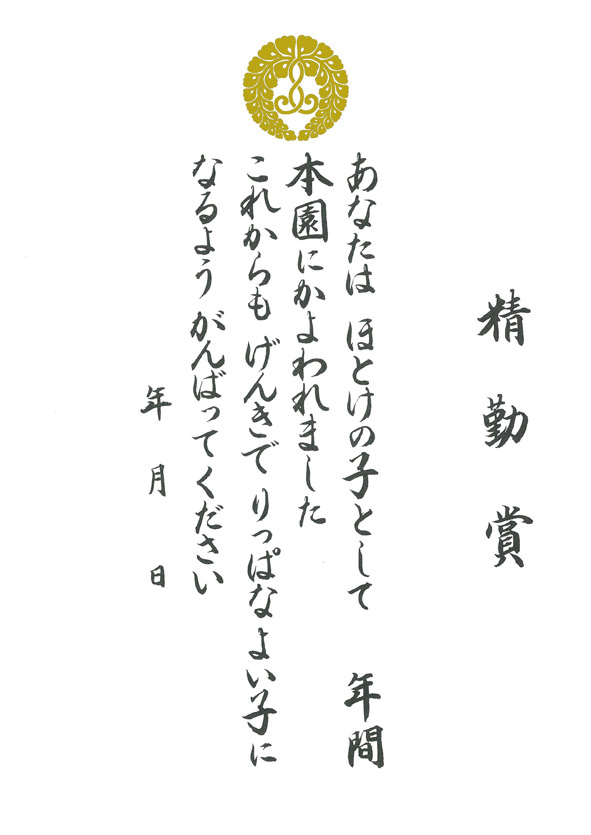 精勤賞
あなたは ほとけの子として 年間
本園にかよわれました
これからも げんきで りっぱな よい子に
なるよう がんばってください
年 月 日